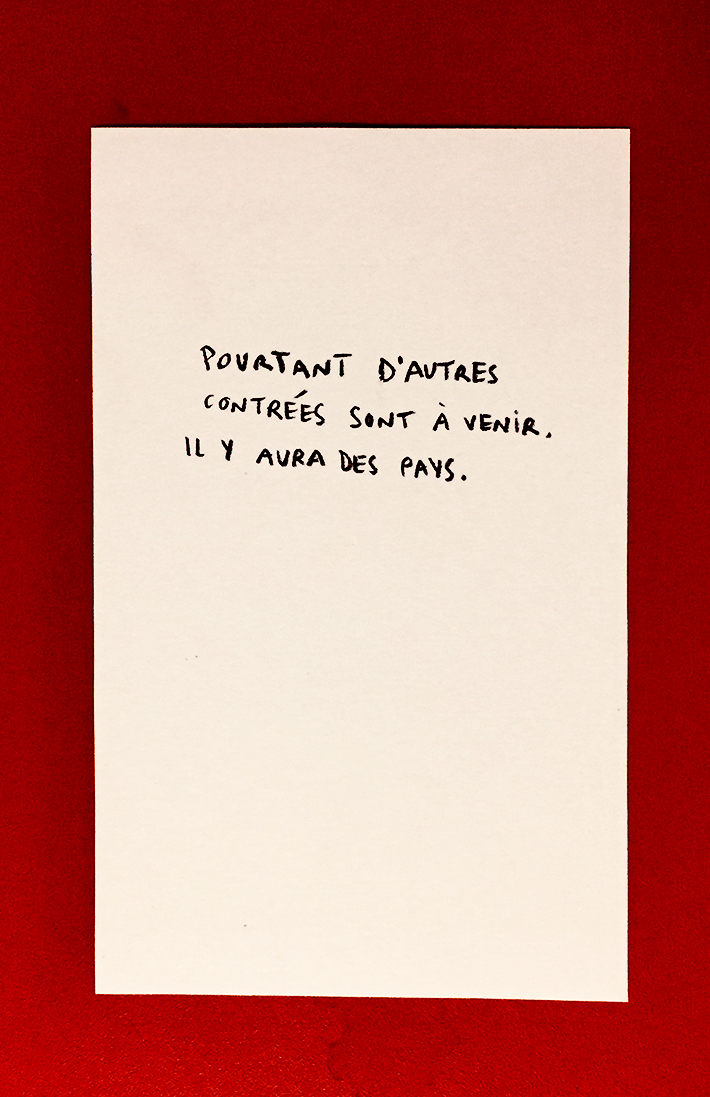 POURTANT D'AUTRES
CONTRÉES SONT À VENIR.
IL Y AURA DES PAYS.